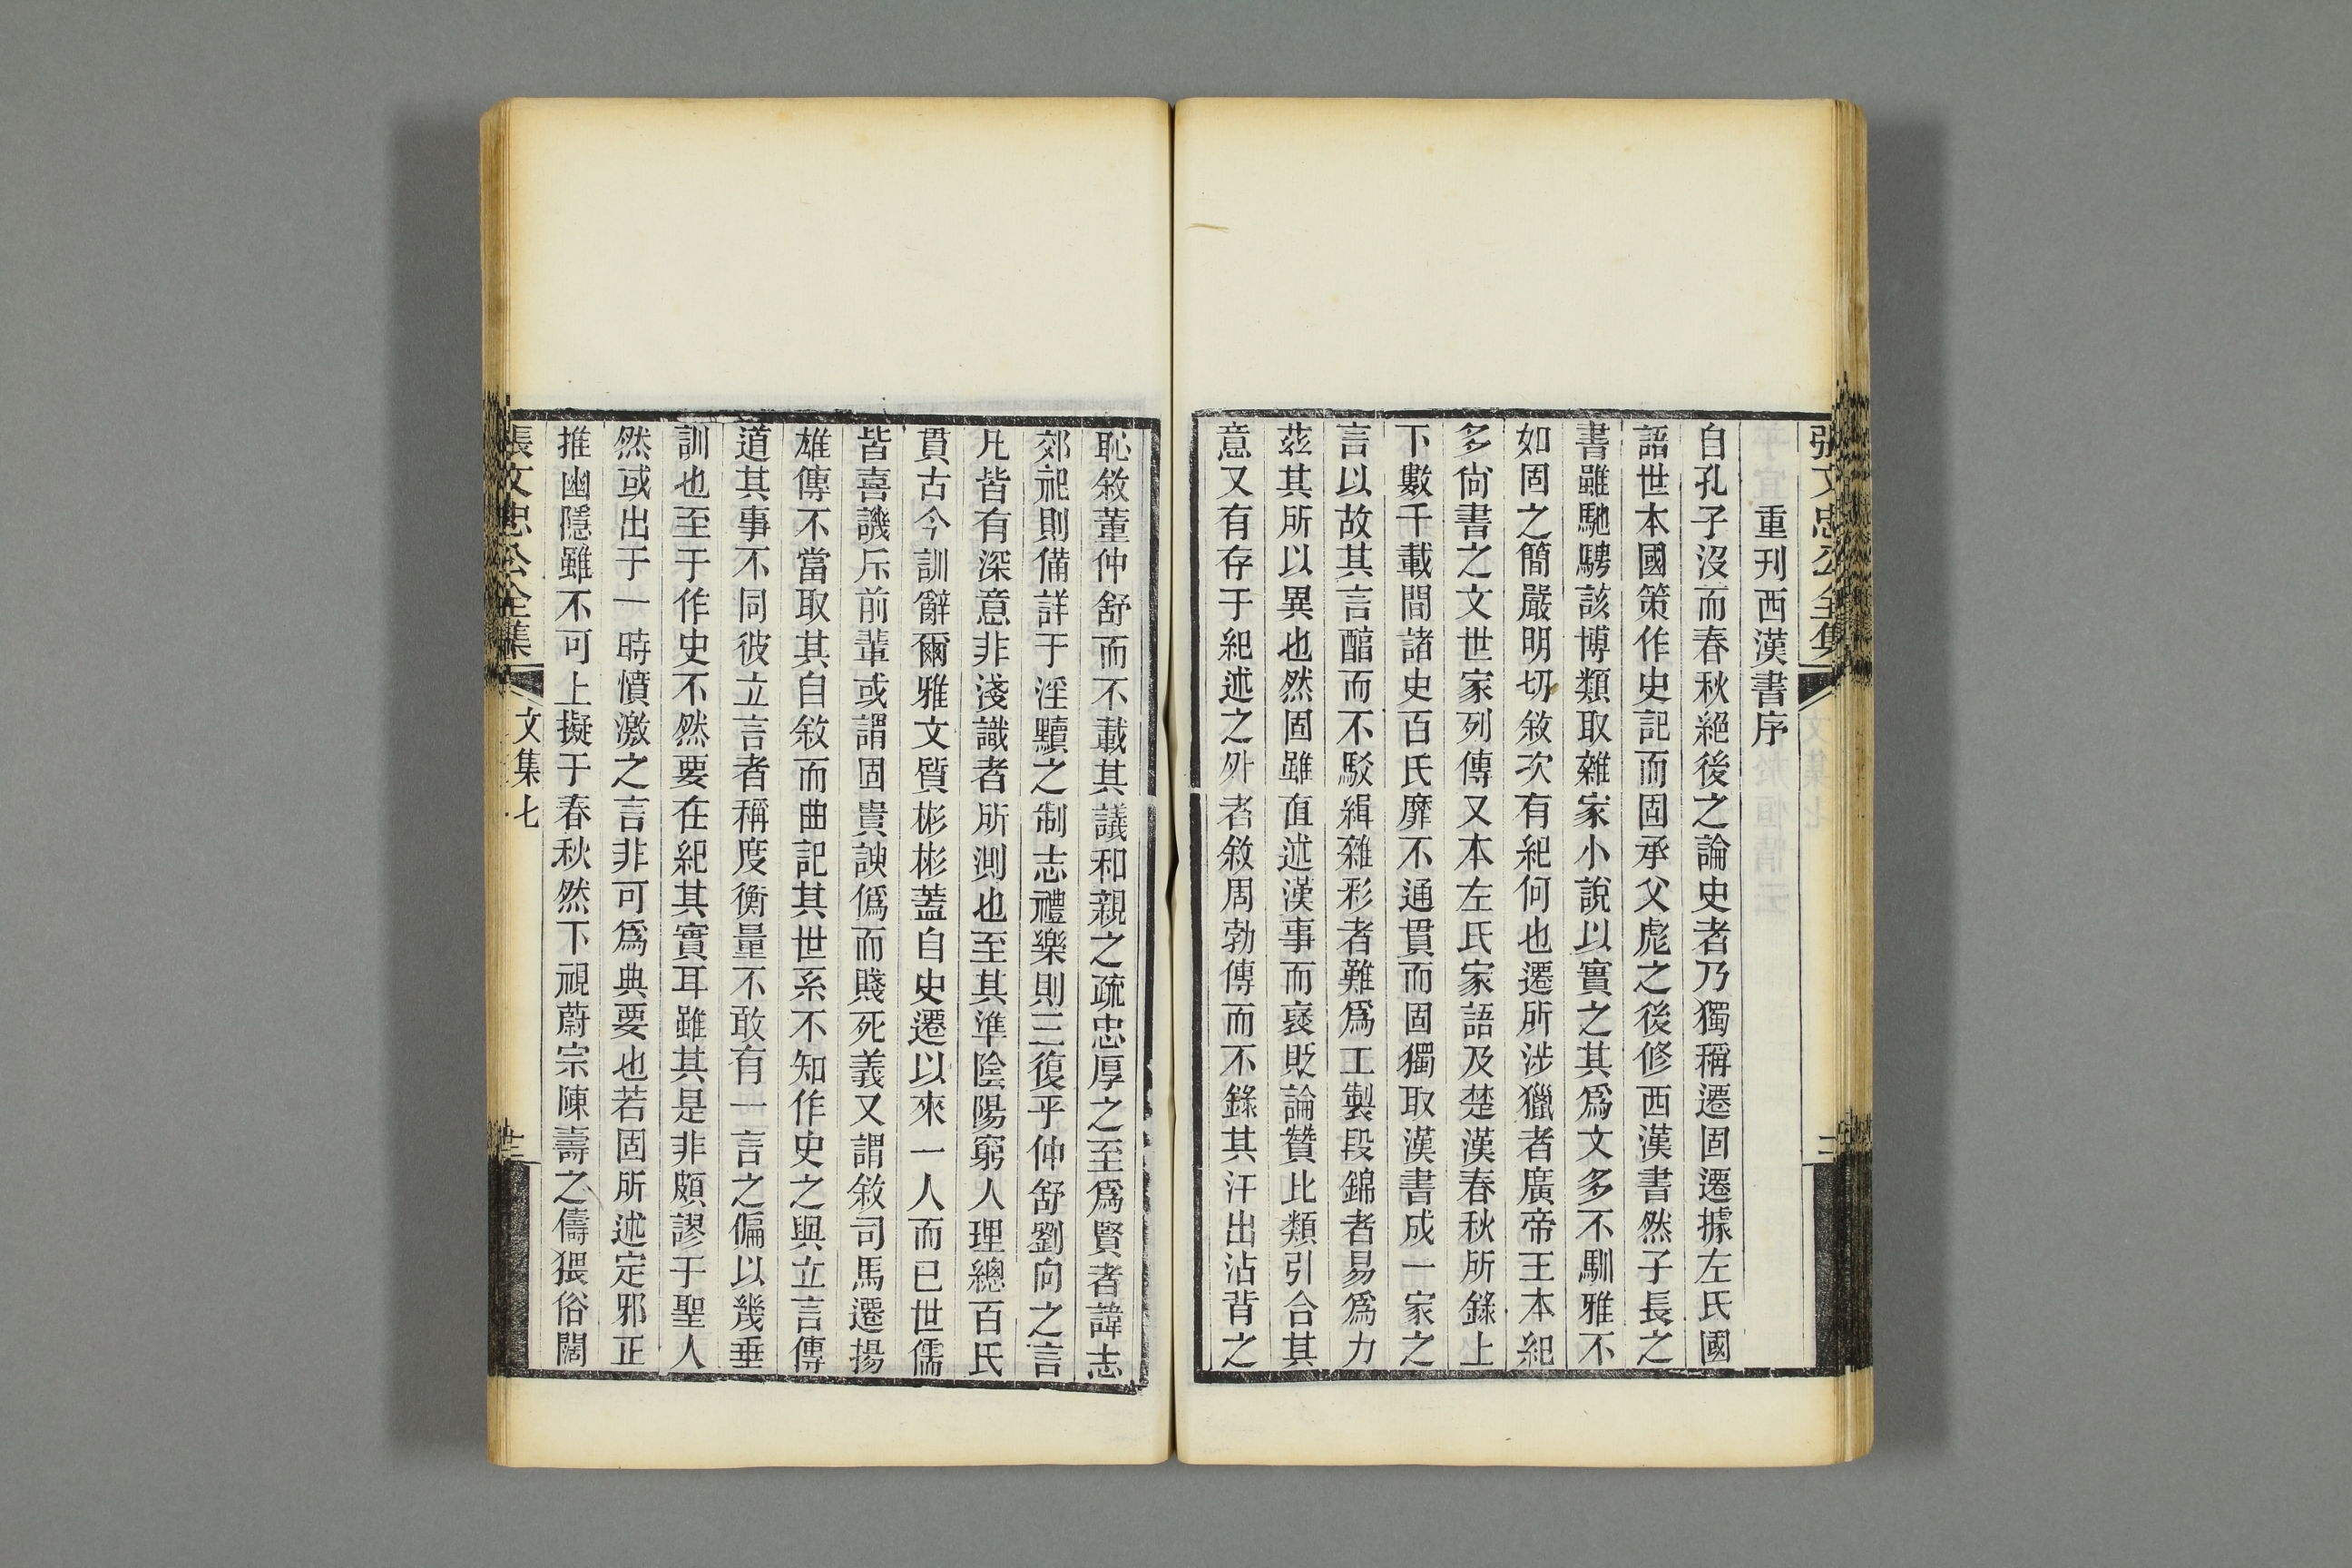 張文忠公全集
重刊西漢書序
自孔子沒而春秋絕後之論史者乃獨稱遷固遷據左氏國
語世本國策作史記而固承父彪之後修西漢書然子長之
書雖馳騁該博類取雜家小說以實之其爲文多不馴雅不
如固之簡嚴明切敘次有紀何也遷所涉獵者廣帝王本紀
多尙書之文世家列傳又本左氏家語及楚漢春秋所錄上
下數千載間諸史百氏靡不通貫而固獨取漢書成一家之
言以故其言醕而不駁緝雜彩者難爲工製段錦者易爲力
茲其所以異也然固雖直述漢事而褒貶論贊比類引合其
意又有存于紀述之外者敘周勃傳而不錄其汗出沾背之
恥敘董仲舒而不載其議和親之疏忠厚之至爲賢者諱志
郊祀則備詳于淫黷之制志禮樂則三復乎仲舒劉向之言
凡皆有深意非淺識者所測也至其準陰陽窮人理總百氏
貫古今訓辭爾雅文質彬彬蓋自史遷以來一人而已世儒
皆喜譏斥前輩或謂固貴諛僞而賤死義又謂敘司馬遷揚
雄傳不當取其自敘而曲記其世系不知作史之與立言傳
道其事不同彼立言者稱度衡量不敢有一言之偏以幾垂
訓也至于作史不然要在紀其實耳雖其是非頗謬于聖人
然或出于一時憤激之言非可爲典要也若固所述定邪正
推幽隱雖不可上擬于春秋然下視蔚宗陳壽之儔猥俗闊
張文忠公全集 文集七